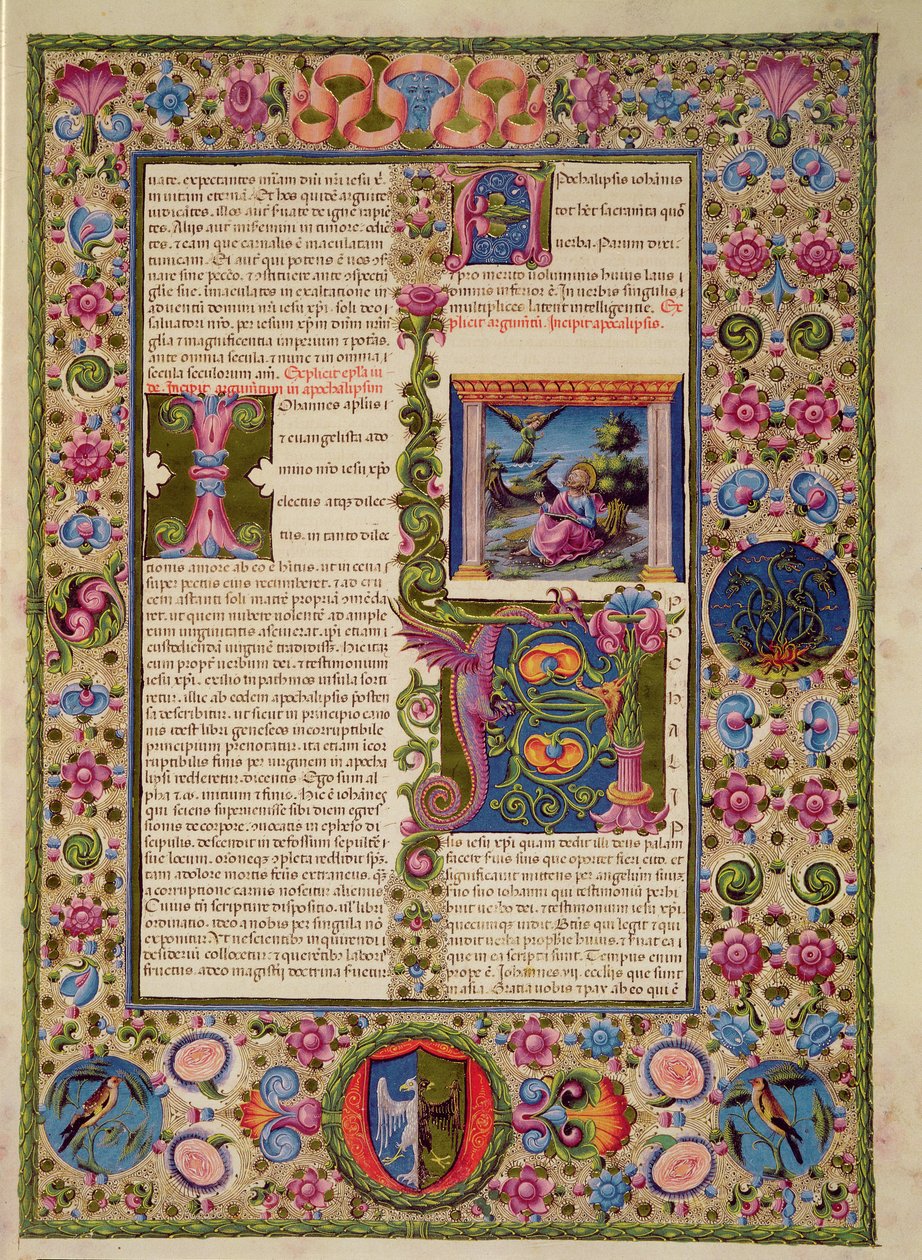 uate. expectantes mīam dn̄i nr̄i iesu xp̄.
in uitam eternā. Et hos quidē arguite
iudicatos. illos aut̄ saluate de igne rapiē
tes. Aliis aut̄ misemini in timore. odiē
tes. & eam que carnalis ē maculatam
tunicam. Ei aut̄ qui potens ē uos
uare sine peccō. & ꝯstituere ante ꝯspectū
glīe sue. īmaculatos in exaltatione in
aduentū domini nr̄i iesu xp̄i. soli deo
saluatori nr̄o. per iesum xp̄m dn̄m nr̄m
glīa & magnificentia imperium & potās.
ante omnia secula. & nunc & in omnia
secula seculorum am̄. Explicit epl̄a iu
de. Incipit argumtum in apochalipsim
IOhannes apl̄us
& euangelista a do
mino nr̄o iesu xp̄o
electus atqꝫ dilec
tus. in tanto dilec
tionis amore ab eo ē hītus. ut in cena
super pectus eius recumberet. & ad cru
cem astanti soli matrē propriā ꝯmēda
ret. ut quem nubere uolentē. adample
xum uirginitatis asciuerat. ip̄i etiam
custodiendā uirginē tradidiss. Hic itaqꝫ
cum propt̄ uerbum dei. & testimonium
iesu xp̄i. exilio in pathmos insula sorti
retur. illic ab eodem apochalipsis posten
sa describitur. ut sicut in principio cano
nis idest libri geneseos incorruptibile
principium prenotatur. ita etiam īcor
ruptibilis finis per uirginem in apocha
lipsi redderetur. dicentis Ego sum al
pha & ω. initium & finis. Hic ē iohānes
qui sciens superuenisse sibi diem egres
sionis de corpore. ꝯuocatis in epheso di
scipulis. descendit in defossum sepulture
sue locum. orōneqꝫ ꝯpleta reddidit sp̄m.
tam a dolore mortis factus extraneus. qꝫ
a corruptione carnis noscitur alienus
Cuius tn̄ scripture dispositio. ul̄ libri
ordinatio. ideo a nobis per singula nō
exponitur. ut nescientibꝫ inquirendi
desideriū collocetur. & querentibꝫ laboris
fructus. a deo magistri doctrina seruetur
APochalipsis iohānis
tot hēt sacramēta quō
uerba. Parum dixi.
& pro merito uoluminis huius laus
omnis inferior ē. In uerbis singulis
multiplices latent intelligentie. Ex
plicit argumtū. Incipit apocalipsis.
APOCHALI
P
sis iesu xp̄i quam dedit illi deus palam
facere seruis suis que oportet fieri cito. et
significauit mittens per angelum suūꝫ
seruo suo iohanni qui testimoniū perhi
buit uerbo dei. & testimonium iesu xp̄i.
quecumqꝫ uidit. Btūs qui legit & qui
audit uerba prophīe huius. & seruat ea
que in ea scripta sunt. Tempus enim
prope ē. Iohannes .vij. ecclīis que sunt
in asia. Gratia uobis & pax ab eo qui ē